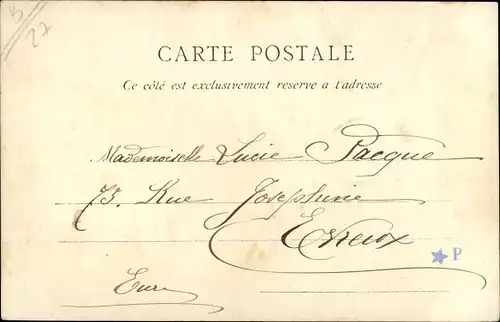 B
27
CARTE POSTALE
Ce côté est exclusivement reserve a t'adresse
Mademoiselle Lucie Pacque
73. Rue Josephine
Evreux
P
Eure